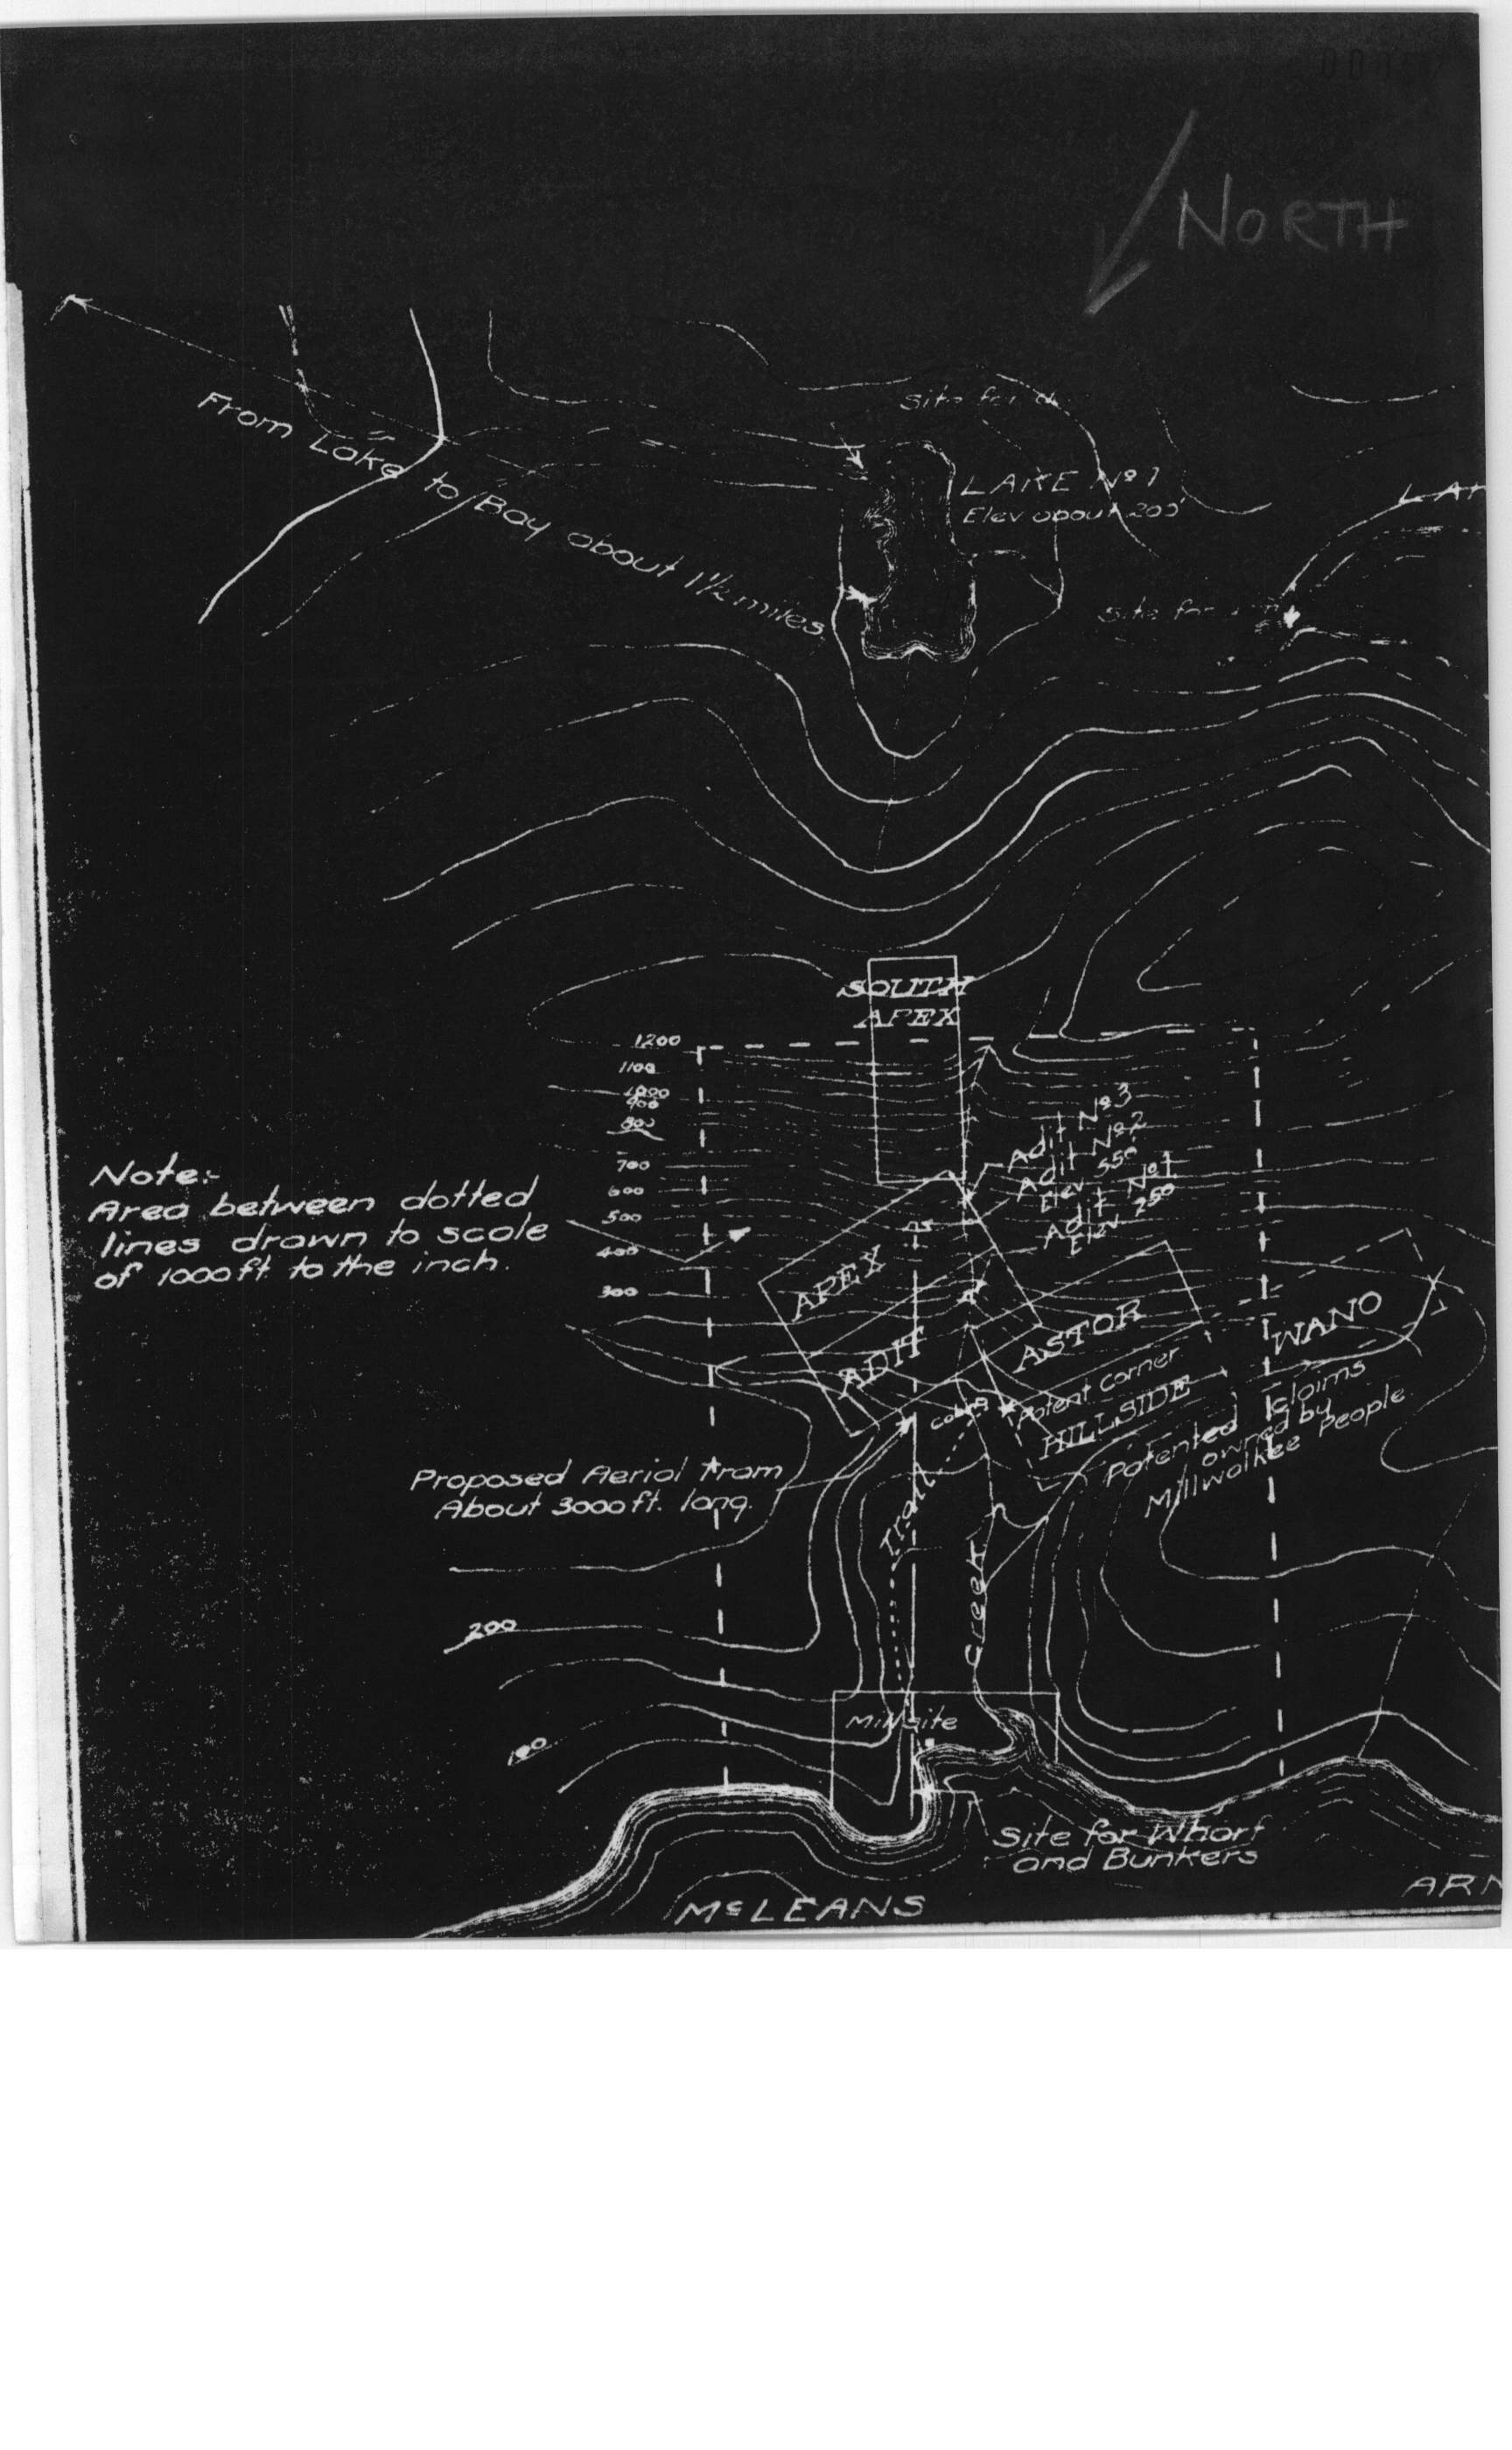 NORTH
Site for a
LAKE Nº 1
Elev about 200'
From Lake to Bay about 1½ miles
Site for
SOUTH
APEX
1200
1100
1000
900
800
700
600
500
400
300
Adit Nº 3
Adit Nº 2
Elev 550'
Adit Nº 1
Elev. 250
Note:-
Area between dotted
lines drawn to scale
of 1000 ft. to the inch.
APEX
ADIT
ASTOR
WANO
Patent Corner
HILLSIDE
Cabin
Patented claims
owned by
Millwalkee People
Proposed Aerial Tram
About 3000 ft. long.
Trail
Creek
200
100
Millsite
Site for Wharf
and Bunkers
McLEANS
ARN